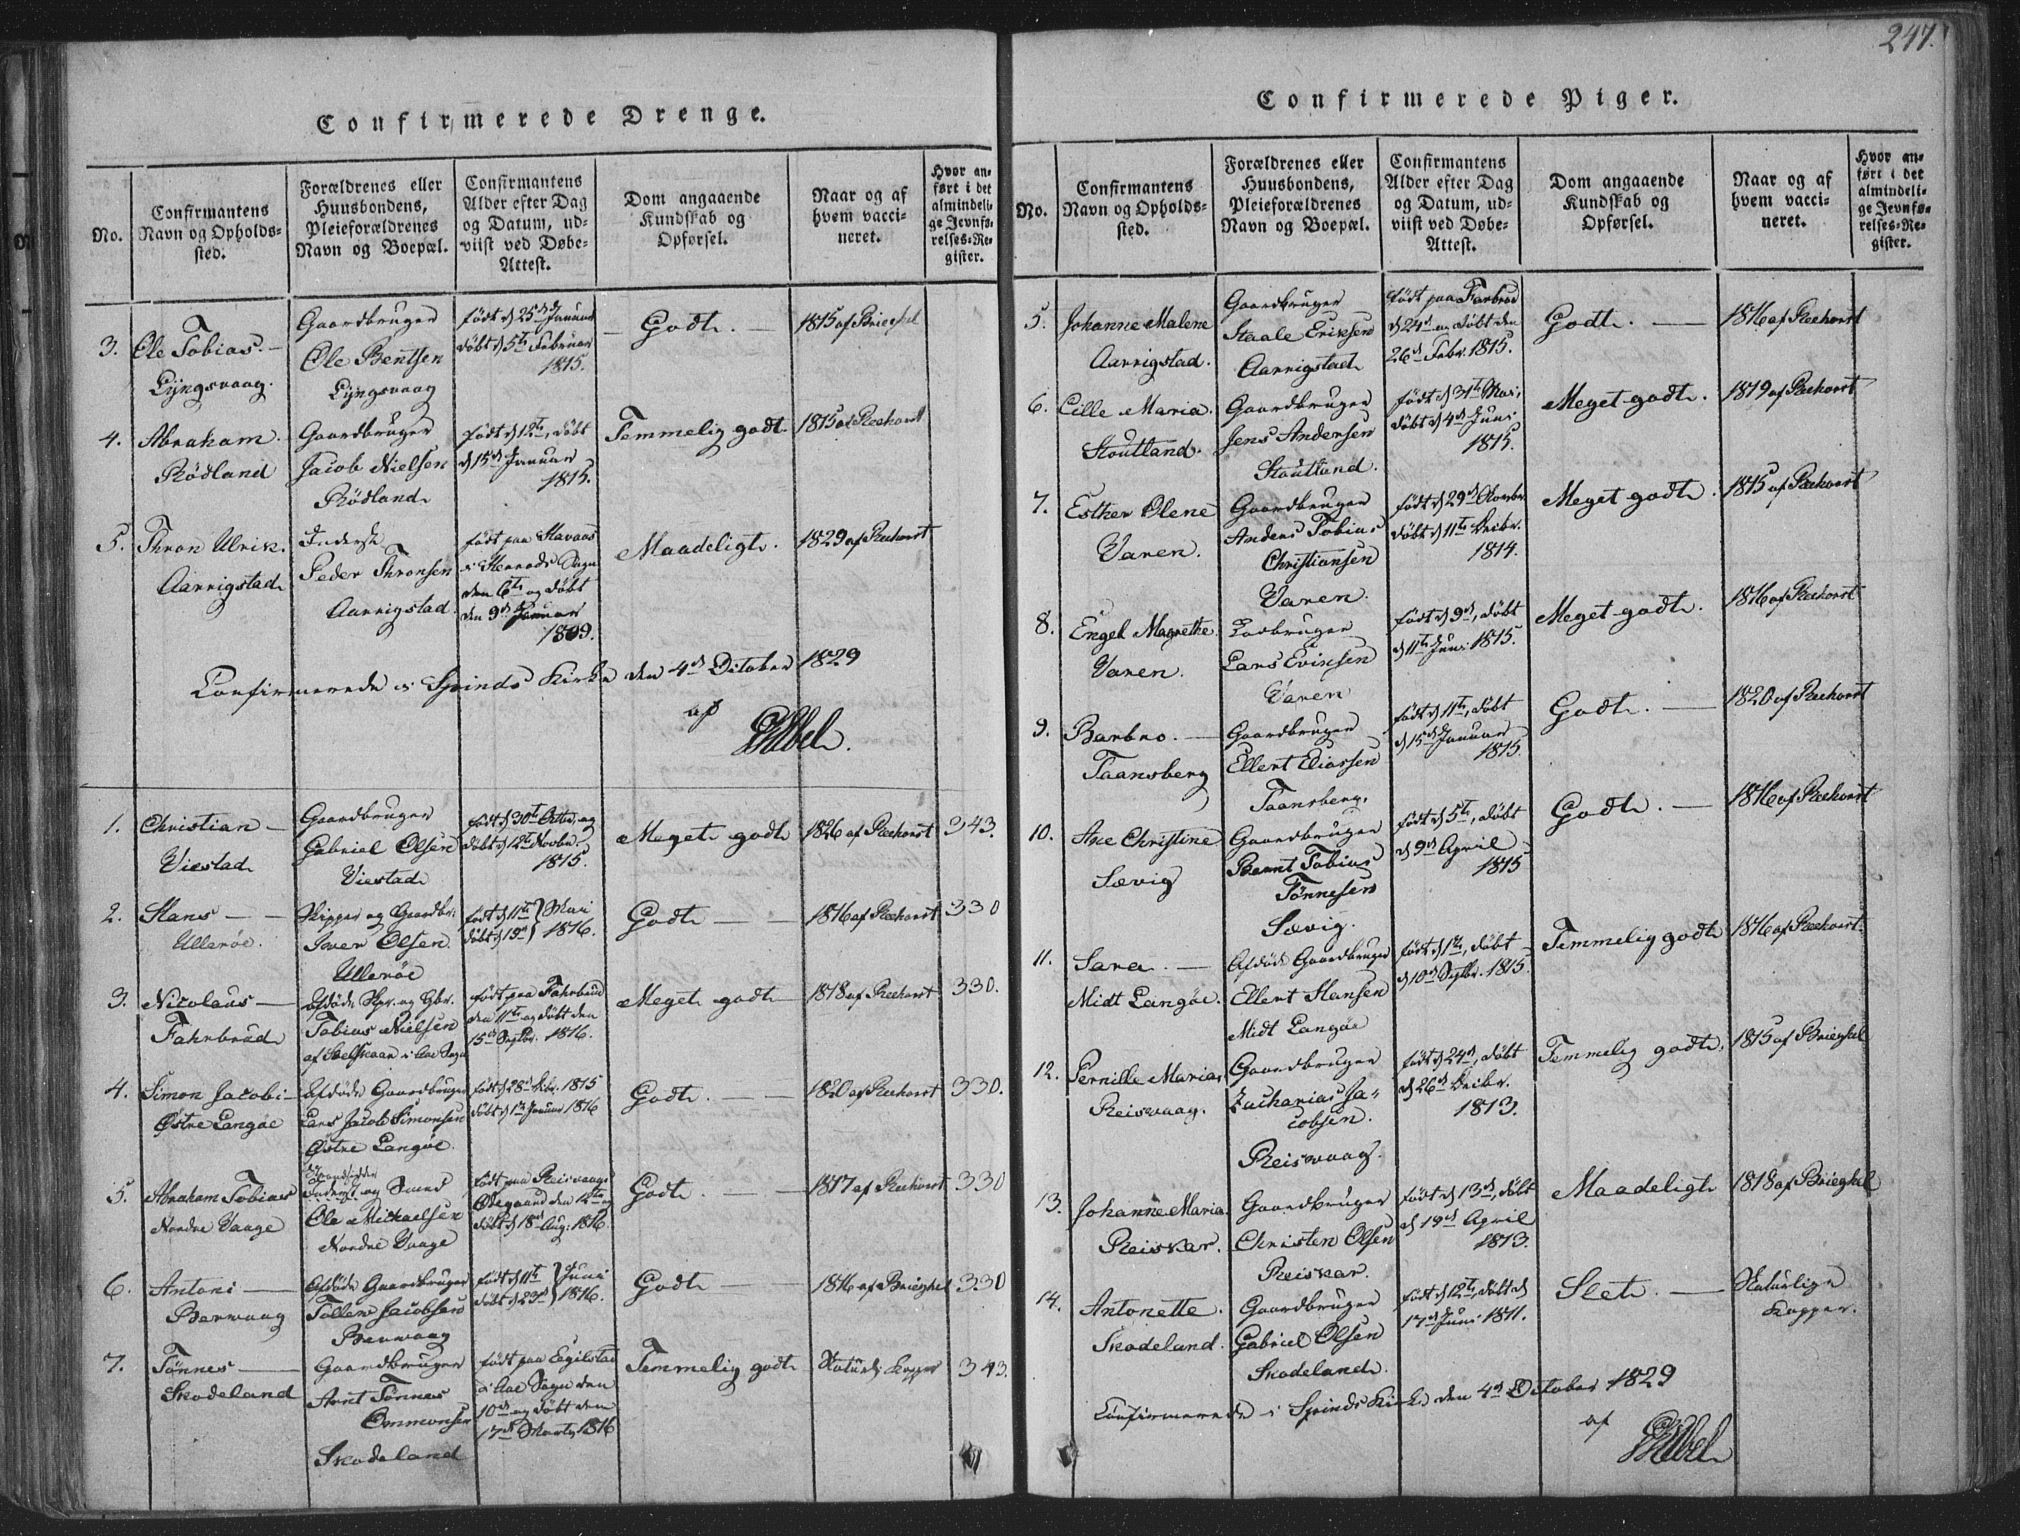 Confirmerede Drenge.
No.
Confirmantens
Navn og Opholds-
sted.
Forældrenes eller
Huusbondens,
Pleieforældrenes
Navn og Boepæl.
Confirmantens
Alder efter Dag
og Datum, ud-
viist ved Døbe-
Attest.
Dom angaaende
Kundskab og
Opførsel.
Naar og af
hvem vacci-
neret.
Hvor an-
ført i det
almindeli-
ge Jevnfø-
relses-Re-
gister.
3.
Ole Tobias.
Lyngsvaag.
Gaardbruger
Ole Bentsen
Lyngsvaag
født d 25de Januar
døbt d 5te Februar
1815.
Godt.
1815 af Brieghel
4.
Abraham.
Rödland
Gaardbruger
Jacob Nielsen
Rödland
født d 12te, døbt
d 15de Januar
1815.
Temmelig godt
1815 af Reehorst
5.
Thron Ulrik.
Aarrigstad
Inderste
Peder Thronsen
Aarrigstad.
født paa Havaas
i Herreds Sogn
den 6te og døbt
den 9de Januar
1809.
Maadeligt.
1829 af Reehorst
Confirmerede i Spinds Kirke den 4de October 1829
af
Abel.
1.
Christian
Viestad
Gaardbruger
Gabriel Olsen
Viestad
født d 30te Octbr. og
døbt d 12te Novbr.
1815.
Meget godt
1826 af Reehorst
343.
2.
Hans
Ulleröe.
Skipper og Gaardbr.
Iver Olsen
Ulleröe
født d 11te } Mai
døbt d 19de } 1816.
Godt
1816 af Reehorst
330
3.
Nicolaus
Fahrbröd
Afdöde Skpr. og Gbr.
Tobias Nielsen
af i Aae Sogn
født paa Fahrbröd
den 11te og døbt den
15de Septbr. 1816.
Meget godt
1818 af Reehorst
330.
4.
Simon Jacobi
Østre Langøe
Afdöde Gaardbruger
Lars Jacob Simonsen
Østre Langøe.
født d 28de Decbr. 1815
døbt d 1ste Januar 1816
Godt.
1820 af Reehorst
330.
5.
Abraham Tobias
Nordre Vaage
Inderst og Smed
Ole Mickaelsen
Nordre Vaage
født paa Reisvaags
Ødegaard den 12te og
døbt d 18de Aug. 1816.
Godt.
1817 af Reehorst
330
6.
Antoni
Berwaag
Afdöde Gaardbruger
Tollew Jacobsen
Berwaag
født d 11te } Juni
døbt d 23de } 1816.
Godt
1816 af Brieghel
330
7.
Tönnes
Skodeland
Gaardbruger
Arnt Tönnes
Ommonsen
Skodeland
født paa Eegilstad
i Aae Sogn den
10de og døbt den
17de Marts 1816
Temmelig godt
Naturl. Kopper
343.
247.
Confirmerede Piger.
No.
Confirmantens
Navn og Opholds-
sted.
Forældrenes eller
Huusbondens,
Pleieforældrenes
Navn og Boepæl.
Confirmantens
Alder efter Dag
og Datum, ud-
viist ved Døbe-
Attest.
Dom angaaende
Kundskab og
Opførsel.
Naar og af
hvem vacci-
neret.
Hvor an-
ført i det
almindeli-
ge Jevnfø-
relses-Re-
gister.
5.
Johanne Malene
Aarrigstad.
Gaardbruger
Staale Eriksen
Aarrigstad
født paa Farbröd
d 24de døbt den
26de Febr. 1815.
Godt.
1816 af Reehorst
6.
Lille Maria.
Stoutland.
Gaardbruger
Jens Andersen
Stoutland.
født d 31te Mai,
døbt d 4de Juni
1815.
Meget godt.
1819 af Reehorst
7.
Esther Olene
Varen.
Gaardbruger
Anders Tobias
Christiansen
Varen.
født d 29de Novbr.
døbt d 11te Decbr.
1814.
Meget godt.
1815 af Reehorst
8.
Engel Magrethe.
Varen.
Lodbruger
Lars Evinsen
Varen
født d 9de, døbt
d 11te Juni 1815.
Meget godt.
1816 af Reehorst
9.
Barbro.
Taansberg
Gaardbruger
Ellert Eliassen
Taansberg.
født d 11te, døbt
d 15de Januar
1815.
Godt.
1820 af Reehorst
10.
Ane Christine
Sævig
Gaardbruger
Bernt Tobias
Tönnesen
Sævig.
født d 5te, døbt
d 9de April
1815
Godt.
1816 af Reehorst
11.
Sara.
Midt Langøe.
Afdöde Gaardbruger
Ellert Hansen
Midt Langøe
født d 1ste, døbt
d 10de Septbr. 1815.
Temmelig godt
1816 af Reehorst.
12.
Pernille Maria,
Reisvaag.
Gaardbruger
Zacharias Ja-
cobsen.
Reisvaag.
født d 24de, døbt
d 26de Decbr.
1813.
Temmelig godt.
1815 af Brieghel
13.
Johanne Maria.
Reiskar.
Gaardbruger
Christen Olsen
Reiskar.
født d 13de, døbt
d 19de April
1813.
Maadeligt
1818 af Brieghel
14.
Antonette.
Skodeland.
Gaardbruger
Gabriel Olsen
Skodeland.
født d 12te, døbt d
17de Juni 1811.
Slet.
Naturlige
Kopper.
Confirmerede i Spinds Kirke den 4de October 1829
af
Abel